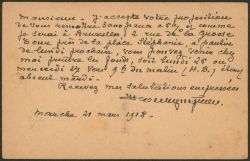 Monsieur - j'accepte votre proposition
de vous remettre 3000 francs à 5%, et comme
je serai à Bruxelles, 2 rue de la grosse
Tour près de la place Stéphanie, à partir
de lundi prochain, vous pouvez venir chez
moi prendre les fonds, soit lundi 25 ou
mercredi 27 vers 9 h du matin (H.B.) étant
absent mardi -
Recevez mes salutations empressées
21 mars 1918 -